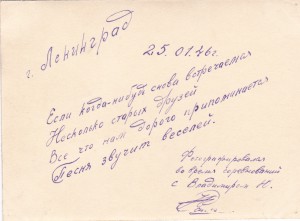 г. Ленинград
25.01.46г.
Если когда-нибудь снова встречаемся
Несколько старых друзей
Все что нам дорого припоминается
Песня звучит веселей.
Фотографировался
во время соревнований
с Владимиром Н.